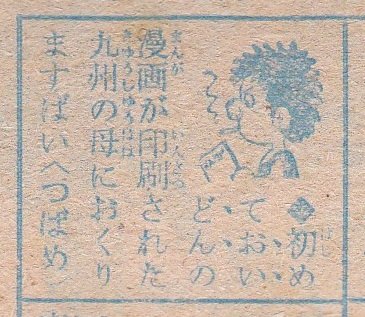 ◆初め
ておい
どんの
漫画が印刷された
九州の母におくり
ますばい（つばめ）